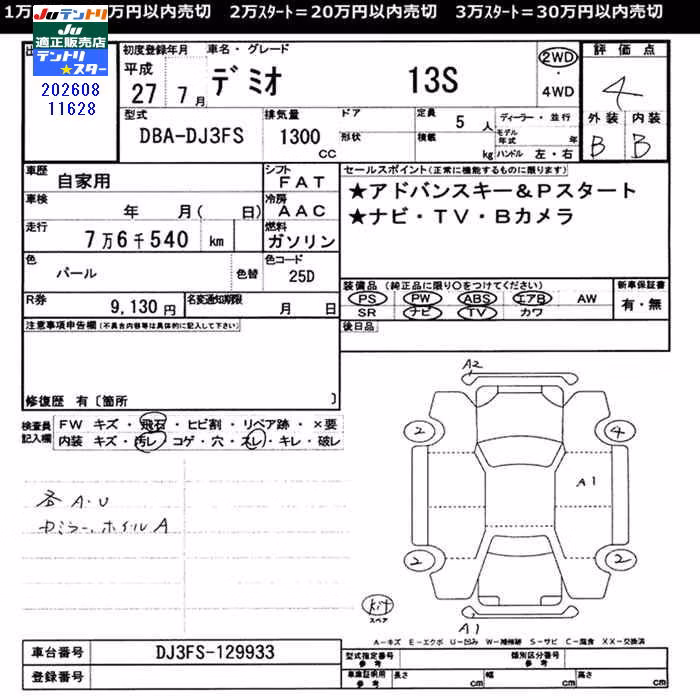 1万スタート=10万円以内売切 2万スタート=20万円以内売切 3万スタート=30万円以内売切
JUテントリ
JU
適正販売店
テントリ★スター
202608
11628
初度登録年月
平成
27 7月
車名・グレード
デミオ 13S
2WD
・
4WD
評価点
4
外装 内装
B B
型式
DBA-DJ3FS
排気量
1300
CC
ドア
形状
定員
5 人
積載
kg
ディーラー・並行
モデル年式 年
ハンドル 左・右
車歴
自家用
シフト
FAT
車検
年 月( 日)
冷房
AAC
走行
7万6千540 km
燃料
ガソリン
色
パール
色替
色コード
25D
R券
9,130円
名変通知期限
月 日
セールスポイント(正常に機能するものに限ります)
★アドバンスキー&Pスタート
★ナビ・TV・Bカメラ
装備品(純正品に限り○をつけてください)
PS PW ABS エアB AW
SR ナビ TV カワ
新車保証書
有・無
後日品
注意事項申告欄(不具合内容等は具体的に記入して下さい)
修復歴 有〔箇所 〕
検査員
記入欄
FW キズ・飛石・ヒビ割・リペア跡・×要
内装 キズ・汚レ・コゲ・穴・スレ・キレ・破レ
各A・U
ホイルA
A2
2
4
A1
2
2
キット
スペア
A1
A-キズ E-エクボ U-凹み W-補修跡 S-サビ C-腐食 XX-交換済
車台番号
DJ3FS-129933
登録番号
型式指定番号
参考
類別区分番号
参考
車庫証明用
参考
長さ cm
幅 cm
高さ cm